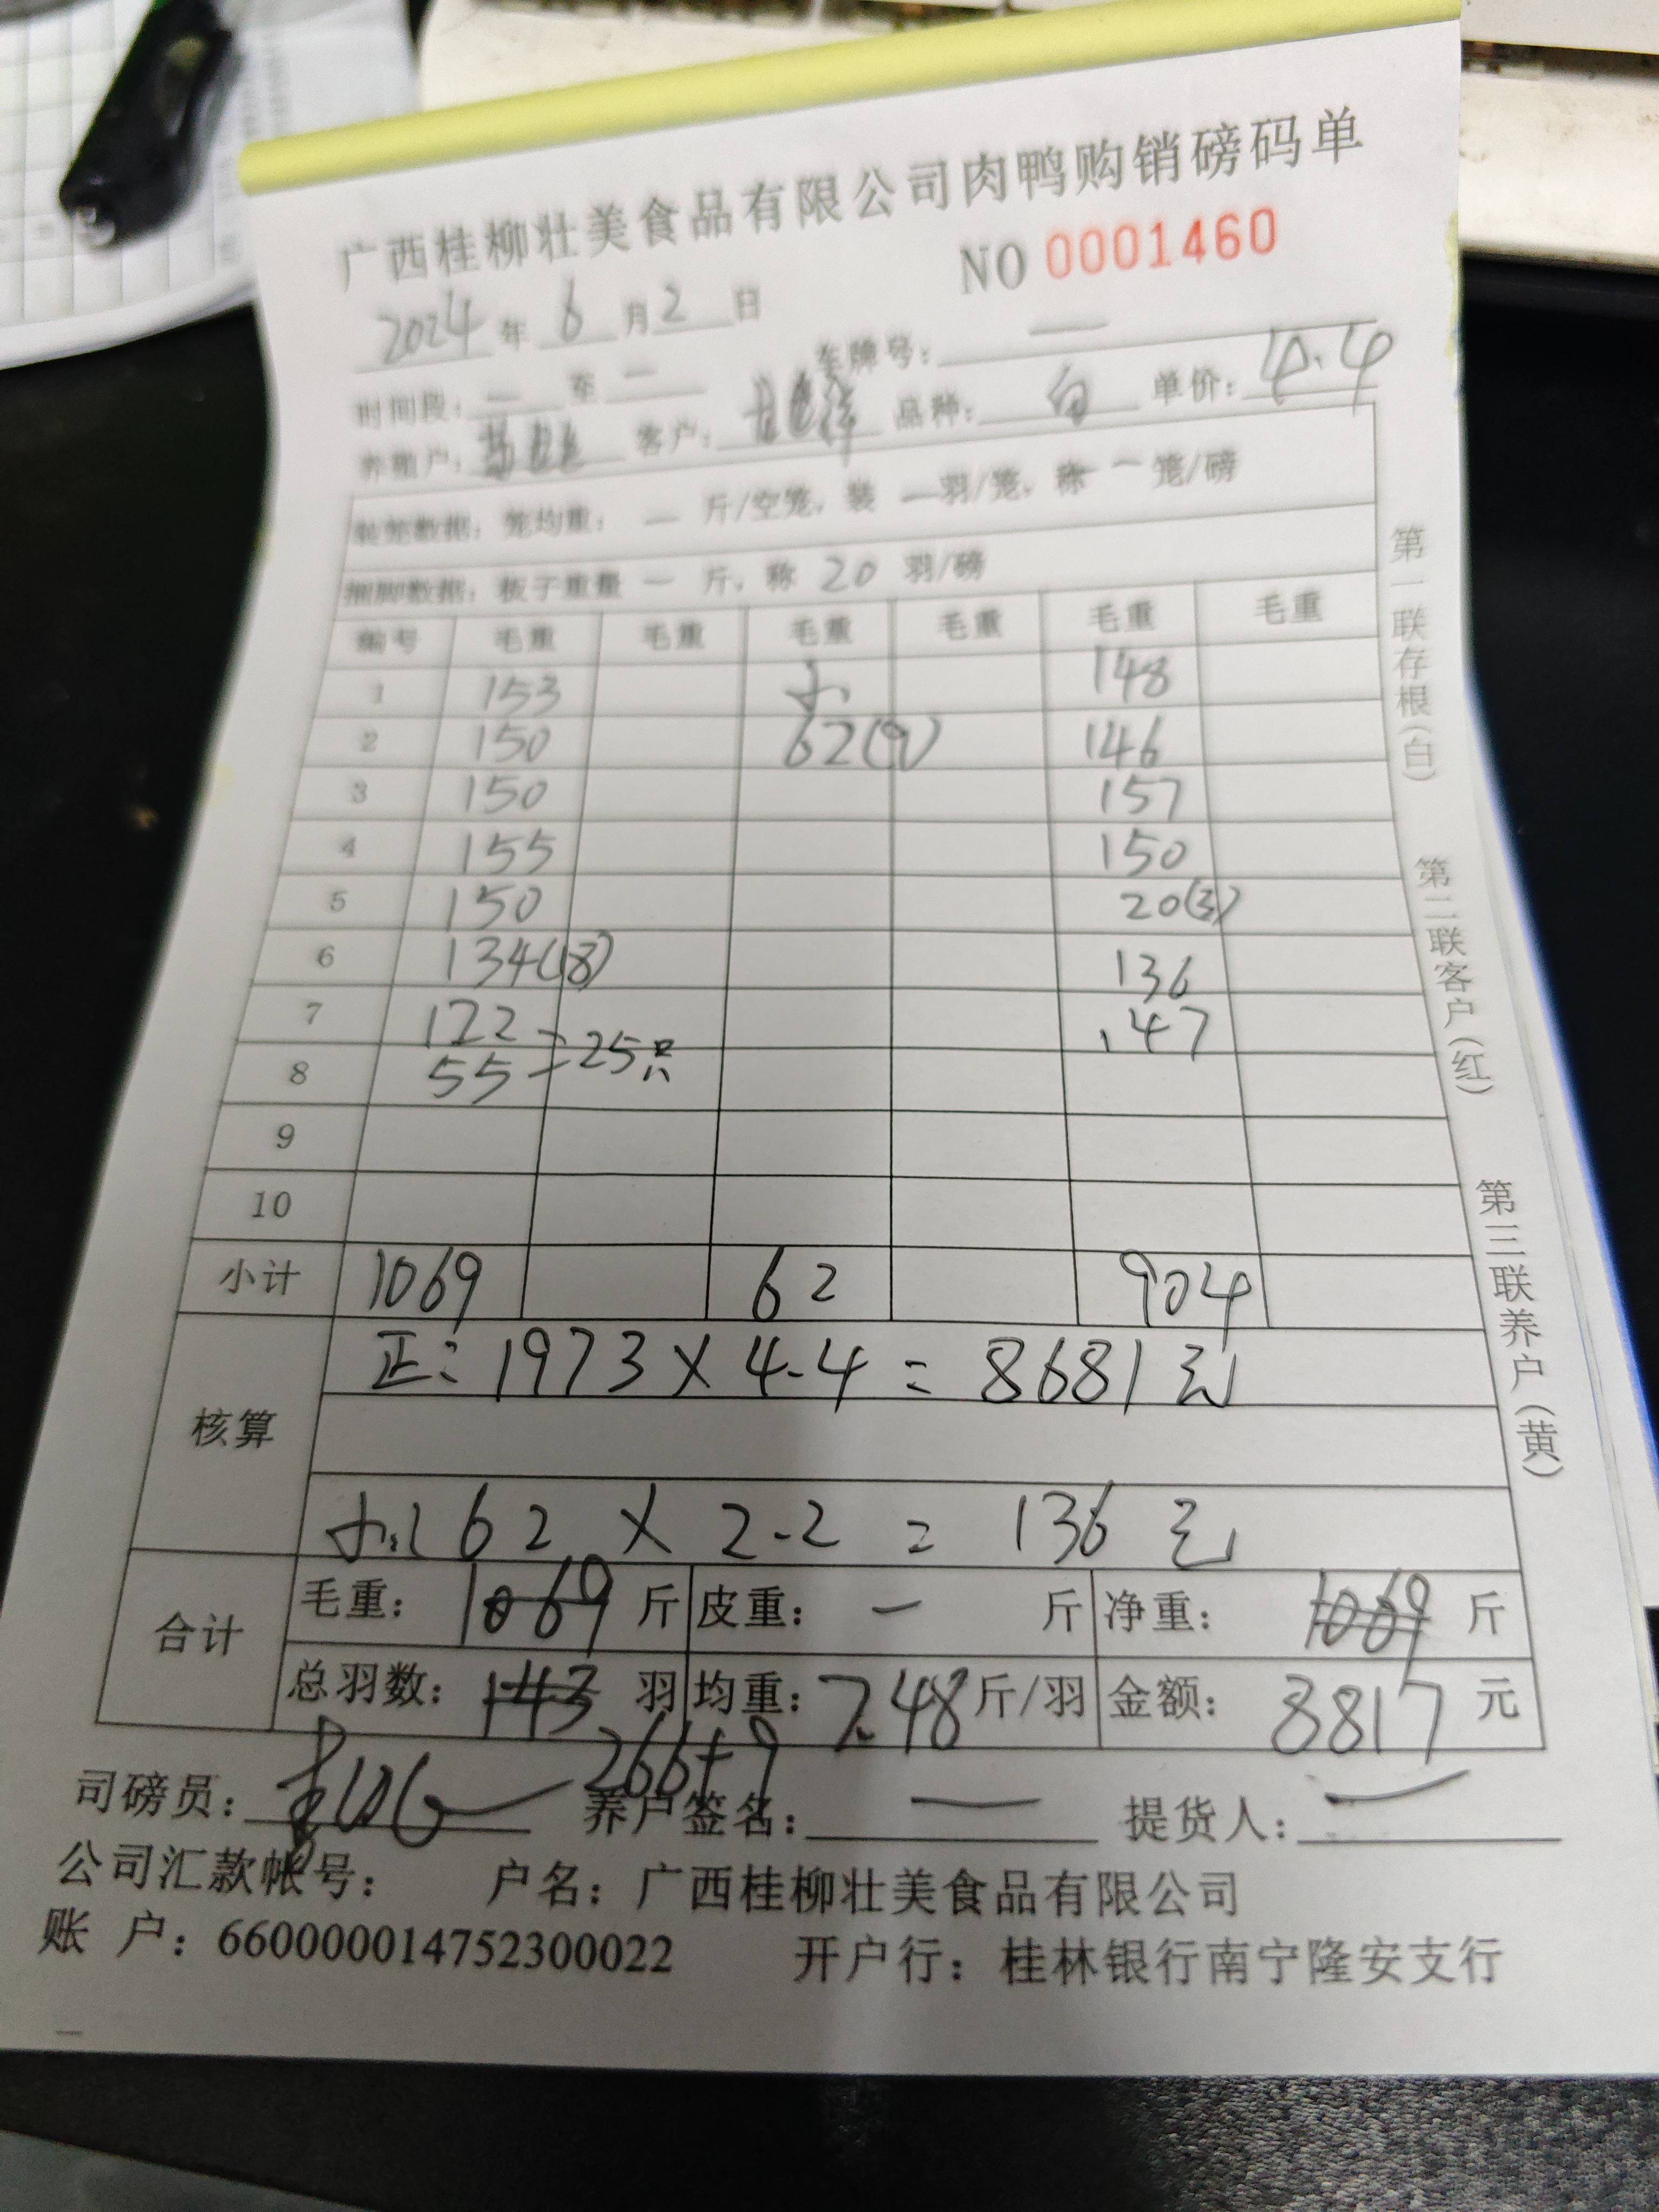 广西桂柳壮美食品有限公司肉鸭购销磅码单
NO 0001460
2024 年 6 月 2 日
时间段: 一 至 一 车牌号: 一
养殖户: 客户: 品种: 白 单价: 4.4
装笼数据: 笼均重: 一 斤/空笼, 装 一 羽/笼, 称 一 笼/磅
捆脚数据: 板子重量 一 斤, 称 20 羽/磅
编号 毛重 毛重 毛重 毛重 毛重 毛重
1 153 小 148
2 150 62(9) 146
3 150 157
4 155 150
5 150 20(3)
6 134(18) 136
7 122 147
=25只
8 55
9
10
小计 1069 62 904
核算
正: 1973 × 4.4 = 8681元
小: 62 × 2.2 = 136 元
合计
毛重: 1069 斤 皮重: 一 斤 净重: 1069 斤
总羽数: 143 羽 均重: 7.48 斤/羽 金额: 8817 元
266+9
司磅员: 养户签名: 一 提货人: 一
公司汇款帐号: 户名: 广西桂柳壮美食品有限公司
账 户: 660000014752300022 开户行: 桂林银行南宁隆安支行
第一联存根(白)
第二联客户(红)
第三联养户(黄)